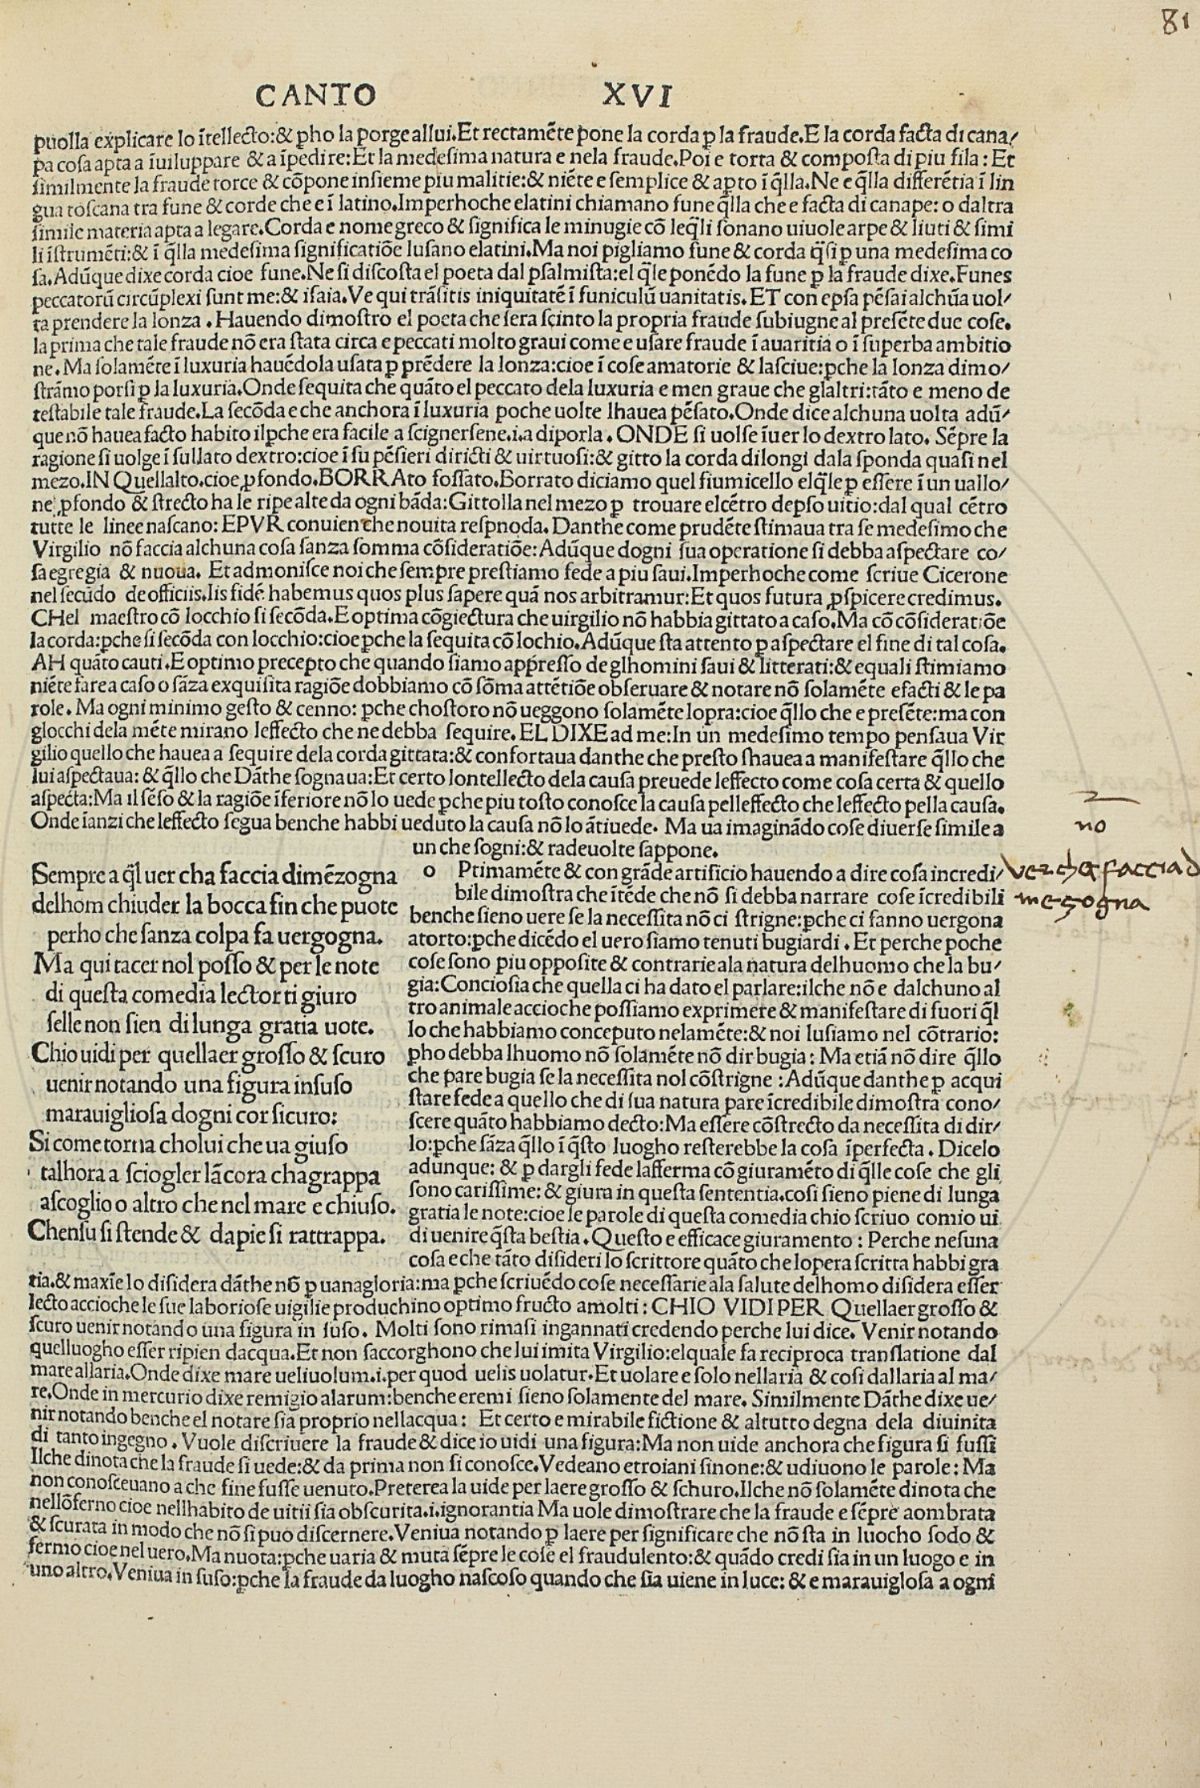 81
CANTO XVI
puolla explicare lo ĩtellecto:& ꝑho la porge allui.Et rectamẽte pone la corda ꝑ la fraude.E la corda facta di cana/
pa cosa apta a ĩuiluppare & a ĩpedire:Et la medesima natura e nela fraude.Poi e torta & composta di piu fila: Et
similmente la fraude torce & cõpone insieme piu malitie:& niẽte e semplice & apto ĩ q̃lla. Ne e q̃lla differẽtia ĩ lin
gua toscana tra fune & corde che e ĩ latino.Imperhoche elatini chiamano fune q̃lla che e facta di canape: o daltra
simile materia apta a legare.Corda e nome greco & significa le minugie cõ leq̃li sonano uiuole arpe & liuti & simi
li ĩstrumẽti:& ĩ q̃lla medesima significatiõe lusano elatini.Ma noi pigliamo fune & corda q̃si ꝑ una medesima co
sa.Adũque dixe corda cioe fune.Ne si discosta el poeta dal psalmista:el q̃le ponẽdo la fune ꝑ la fraude dixe.Funes
peccatorũ circũplexi sunt me:& isaia.Ve qui trãsitis iniquitatẽ ĩ funiculũ uanitatis. ET con epsa pẽsai alchũa uol/
ta prendere la lonza . Hauendo dimostro el poeta che sera scinto la propria fraude subiugne al presẽte due cose.
la prima che tale fraude nõ era stata circa e peccati molto graui come e usare fraude ĩ auaritia o ĩ superba ambitio
ne.Ma solamẽte ĩ luxuria hauẽdola usata ꝑ prẽdere la lonza:cioe ĩ cose amatorie & lasciue:ꝑche la lonza dimo/
strãmo porsi ꝑ la luxuria.Onde sequita che quãto el peccato dela luxuria e men graue che glaltri:tãto e meno de
testabile tale fraude.La secõda e che anchora ĩ luxuria poche uolte lhauea pẽsato.Onde dice alchuna uolta adũ/
que nõ hauea facto habito ilꝑche era facile a scignersene.i.a diporla . ONDE si uolse ĩuer lo dextro lato. Sẽpre la
ragione si uolge ĩ sullato dextro:cioe ĩ su pẽsieri diricti & uirtuosi:& gitto la corda dilongi dala sponda quasi nel
mezo.IN Quellalto.cioe ꝓfondo.BORRAto fossato.Borrato diciamo quel fiumicello elq̃le ꝑ essere ĩ un uallo/
ne ꝓfondo & strecto ha le ripe alte da ogni bãda:Gittolla nel mezo ꝑ trouare elcẽtro depso uitio:dal qual cẽtro
tutte le linee nascano: EPVR conuien che nouita respnoda. Danthe come prudẽte stimaua tra se medesimo che
Virgilio nõ faccia alchuna cosa sanza somma cõsideratiõe:Adũque dogni sua operatione si debba aspectare co/
sa egregia & nuoua. Et admonisce noi che sempre prestiamo fede a piu saui.Imperhoche come scriue Cicerone
nel secũdo de officiis.Iis fidẽ habemus quos plus sapere quã nos arbitramur:Et quos futura ꝓspicere credimus.
CHel maestro cõ locchio si secõda.E optima cõgiectura che uirgilio nõ habbia gittato a caso.Ma cõ cõsideratiõe
la corda:ꝑche si secõda con locchio:cioe ꝑche la sequita cõ lochio.Adũque sta attento ꝑ aspectare el fine di tal cosa.
AH quãto cauti.E optimo precepto che quando siamo appresso de glhomini saui & litterati:& equali stimiamo
niẽte fare a caso o sãza exquisita ragiõe dobbiamo cõ sõma attẽtiõe obseruare & notare nõ solamẽte efacti & le pa
role. Ma ogni minimo gesto & cenno: ꝑche chostoro nõ ueggono solamẽte lopra:cioe q̃llo che e presẽte:ma con
glocchi dela mẽte mirano leffecto che ne debba sequire. EL DIXE ad me:In un medesimo tempo pensaua Vir
gilio quello che hauea a sequire dela corda gittata:& confortaua danthe che presto shauea a manifestare q̃llo che
lui aspectaua: & q̃llo che Dãthe sognaua:Et certo lontellecto dela causa preuede leffecto come cosa certa & quello
aspecta:Ma il sẽso & la ragiõe ĩferiore nõ lo uede ꝑche piu tosto conosce la causa pelleffecto che leffecto pella causa.
Onde ĩanzi che leffecto segua benche habbi ueduto la causa nõ lo ãtiuede. Ma ua imaginãdo cose diuerse simile a
un che sogni:& radeuolte sappone.
no
ver che faccia d
mezogna
Sempre a q̃l uer cha faccia dimẽzogna
delhom chiuder la bocca fin che puote
perho che sanza colpa fa uergogna.
Ma qui tacer nol posso & per le note
di questa comedia lector ti giuro
selle non sien di lunga gratia uote.
Chio uidi per quellaer grosso & scuro
uenir notando una figura insuso
marauigliosa dogni cor sicuro:
Si come torna cholui che ua giuso
talhora a sciogler lãcora chagrappa
ascoglio o altro che nel mare e chiuso.
Chensu si stende & dapie si rattrappa.
o Ptimamẽte & con grãde artificio hauendo a dire cosa incredi/
bile dimostra che ĩtẽde che nõ si debba narrare cose ĩcredibili
benche sieno uere se la necessita nõ ci strigne:ꝑche ci fanno uergona
atorto:ꝑche dicẽdo el uero siamo tenuti bugiardi . Et perche poche
cose sono piu opposite & contrarie ala natura delhuomo che la bu/
gia:Conciosia che quella ci ha dato el parlare:ilche nõ e dalchuno al
tro animale accioche possiamo exprimere & manifestare di fuori q̃l
lo che habbiamo conceputo nelamẽte:& noi lusiamo nel cõtrario:
ꝑho debba lhuomo nõ solamẽte nõ dir bugia: Ma etiã nõ dire q̃llo
che pare bugia se la necessita nol cõstrigne :Adũque danthe ꝑ acqui
stare fede a quello che di sua natura pare ĩcredibile dimostra cono/
scere quãto habbiamo decto:Ma essere cõstrecto da necessita di dir/
lo:ꝑche sãza q̃llo ĩ q̃sto luogho resterebbe la cosa ĩperfecta . Dicelo
adunque: & ꝑ dargli fede lafferma cõ giuramẽto di q̃lle cose che gli
sono carissime:& giura in questa sententia.cosi sieno piene di lunga
gratia le note:cioe le parole di questa comedia chio scriuo comio ui
di uenire q̃sta bestia . Questo e efficace giuramento : Perche nesuna
cosa e che tãto disideri lo scrittore quãto che lopera scritta habbi gra
tia.& maxĩe lo disidera dãthe nõ ꝑ uanagloria:ma ꝑche scriuẽdo cose necessarie ala salute delhomo disidera esser
lecto accioche le sue laboriose uigilie produchino optimo fructo amolti : CHIO VIDI PER Quellaer grosso &
scuro uenir notando una figura in suso. Molti sono rimasi ingannati credendo perche lui dice. Venir notando
quelluogho esser ripien dacqua.Et non saccorghono che lui imita Virgilio:elquale fa reciproca translatione dal
mare allaria.Onde dixe mare ueliuolum.i.per quod uelis uolatur.Et uolare e solo nellaria & cosi dallaria al ma/
re.Onde in mercurio dixe remigio alarum:benche eremi sieno solamente del mare. Similmente Dãthe dixe ue/
nir notando benche el notare sia proprio nellacqua: Et certo e mirabile fictione & altutto degna dela diuinita
di tanto ingegno . Vuole discriuere la fraude & dice io uidi una figura:Ma non uide anchora che figura si fussi
Ilche dinota che la fraude si uede:& da prima non si conosce.Vedeano etroiani sinone:& udiuono le parole: Ma
non conosceuano a che fine fusse uenuto. Preterea la uide per laere grosso & schuro.Ilche nõ solamẽte dinota che
nellõferno cioe nellhabito de uitii sia obscurita.i.ignorantia Ma uole dimostrare che la fraude e sẽpre aombrata
& scurata in modo che nõ si puo discernere.Veniua notando ꝑ laere per significare che nõ sta in luocho sodo &
fermo cioe nel uero.Ma nuota:ꝑche uaria & muta sẽpre le cose el fraudulento:& quãdo credi sia in un luogo e in
uno altro.Veniua in suso:ꝑche la fraude da luogho nascoso quando che sia uiene in luce: & e marauiglosa a ogni